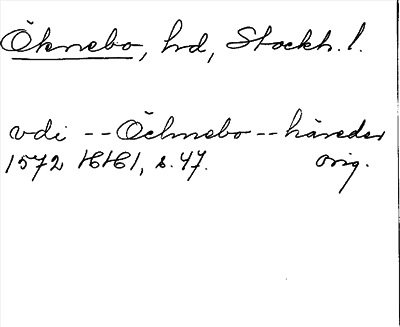 Öknebo, hd, Stockh. l.
vdi -- Öchnebo -- häreder
1572 HH 1, s. 47. orig.